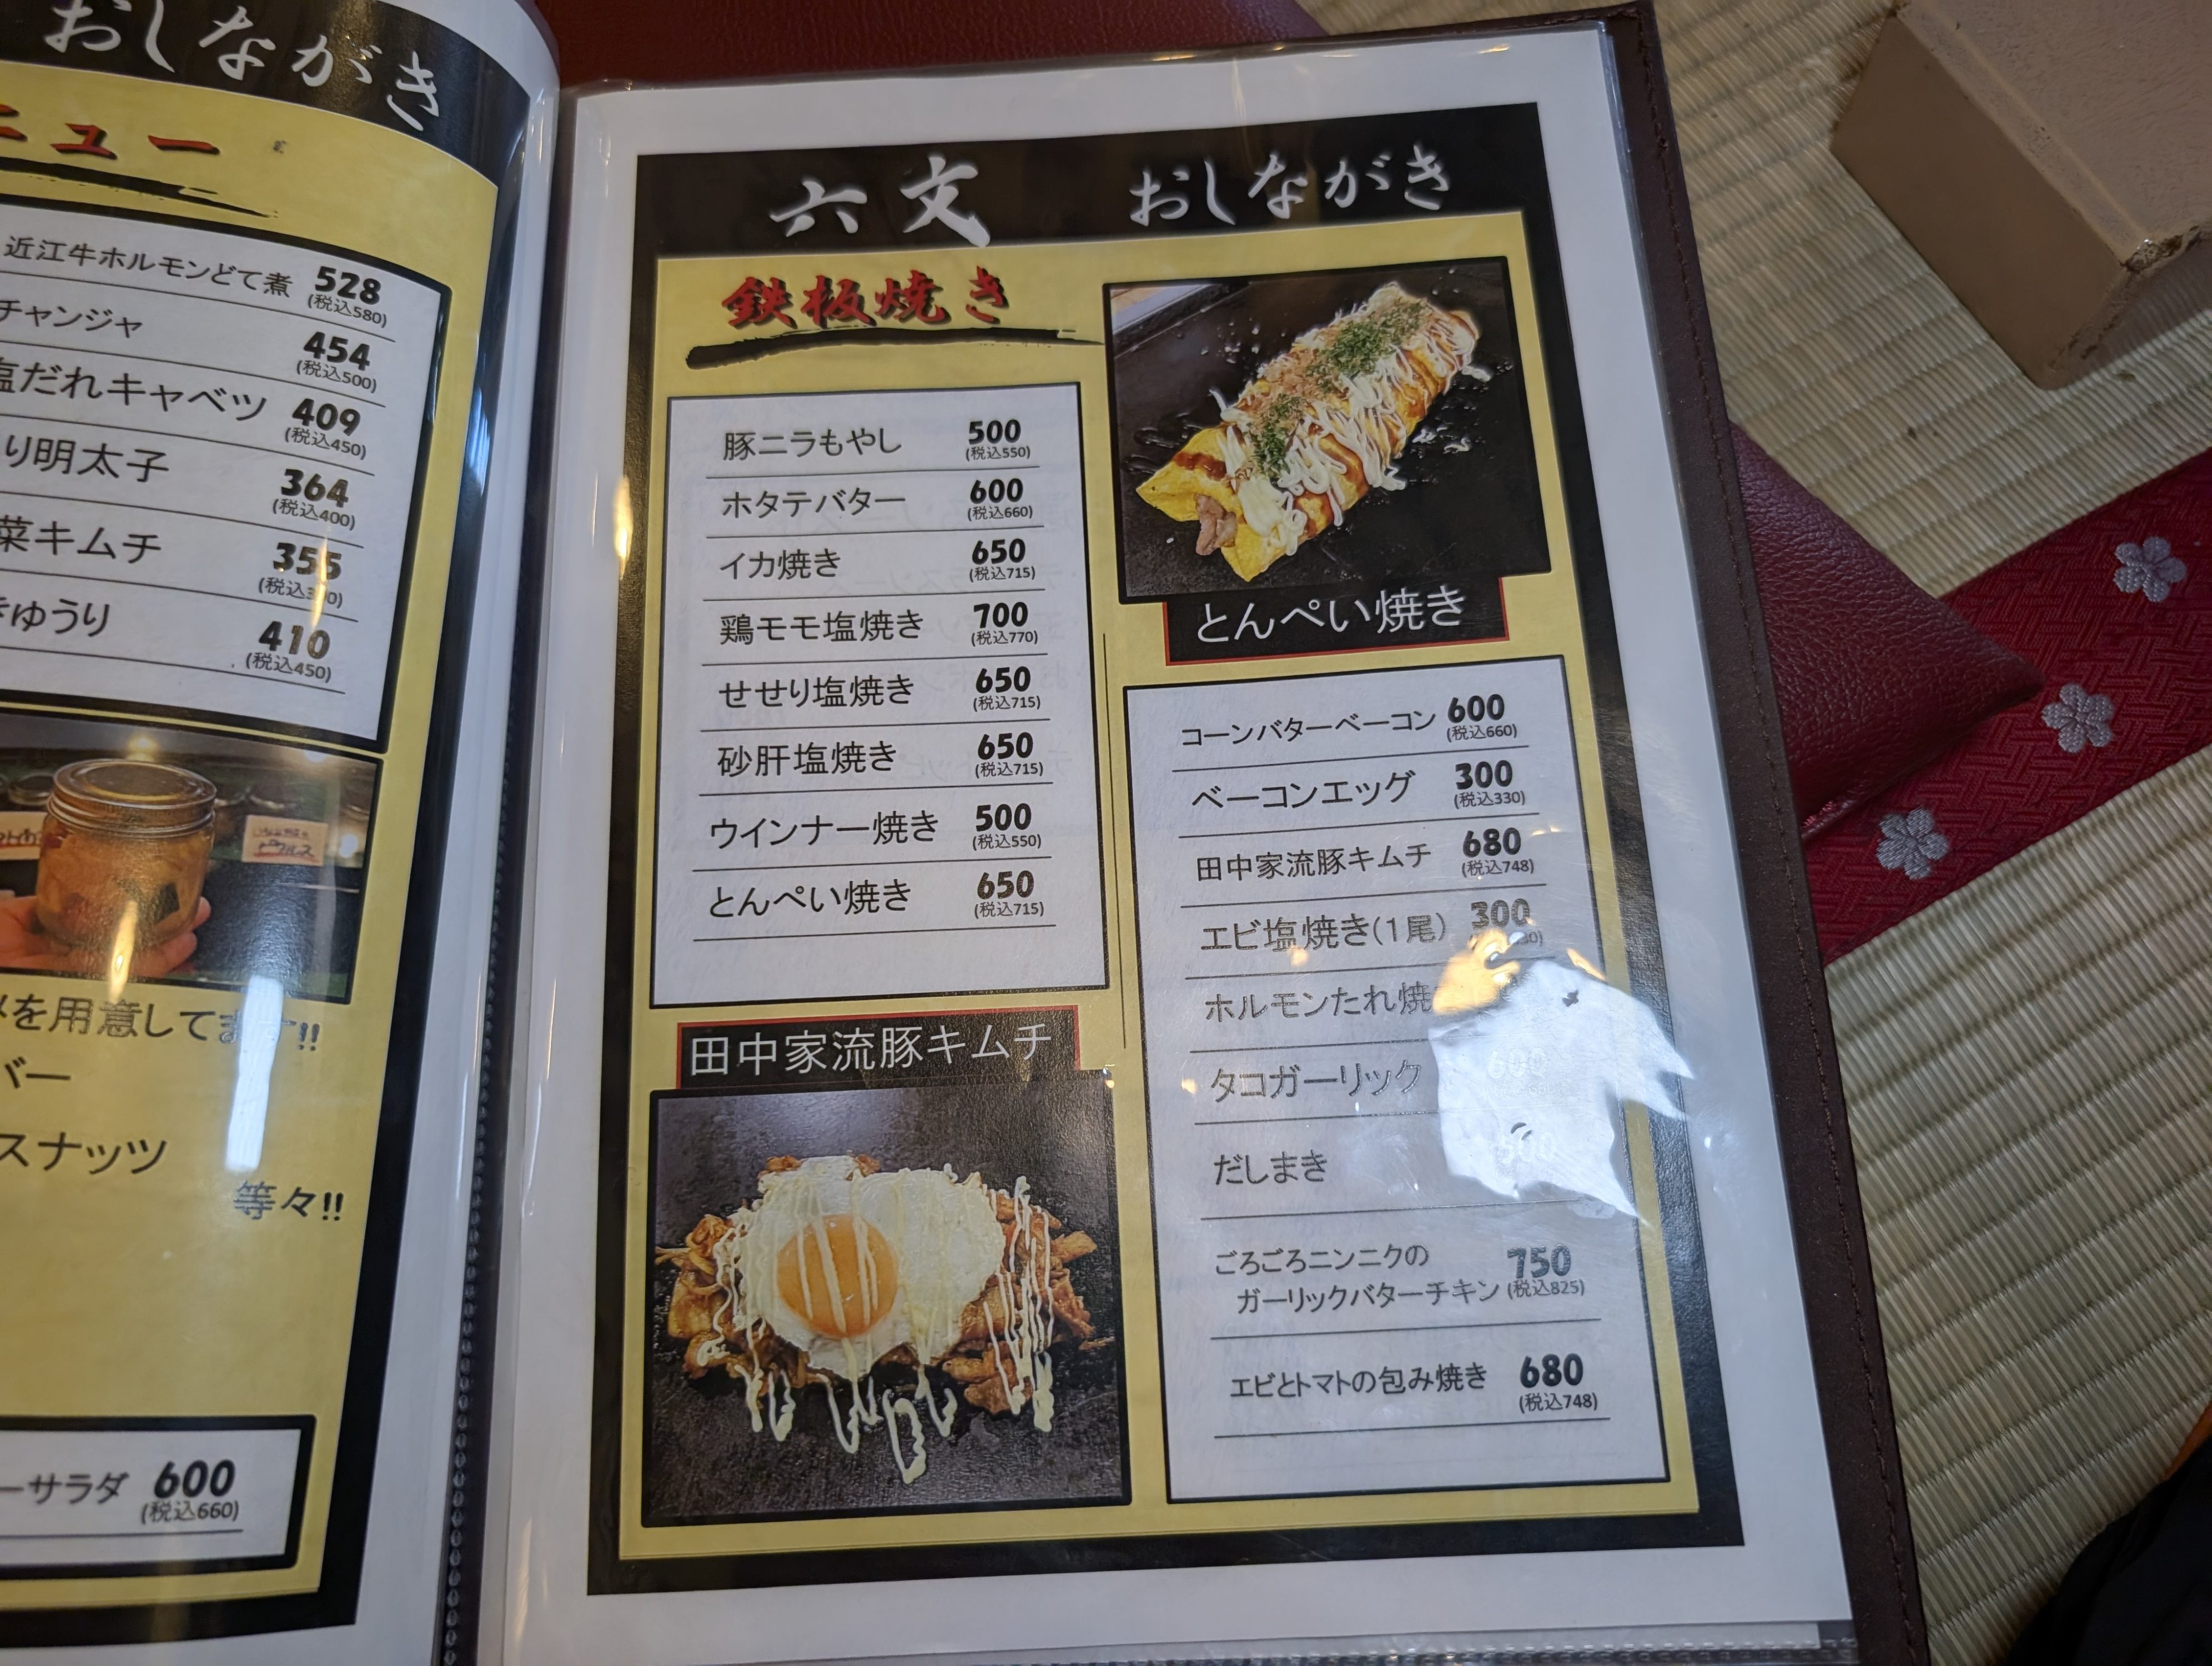 おしながき
ニュー
近江牛ホルモンどて煮 528
(税込580)
チャンジャ 454
(税込500)
塩だれキャベツ 409
(税込450)
り明太子 364
(税込400)
菜キムチ 355
きゅうり 410
(税込450)
を用意してます!!
バー
スナッツ
等々!!
ーサラダ 600
(税込660)
六文 おしながき
鉄板焼き
豚ニラもやし 500
(税込550)
ホタテバター 600
(税込660)
イカ焼き 650
(税込715)
鶏モモ塩焼き 700
(税込770)
せせり塩焼き 650
(税込715)
砂肝塩焼き 650
(税込715)
ウインナー焼き 500
(税込550)
とんぺい焼き 650
(税込715)
田中家流豚キムチ
とんぺい焼き
コーンバターベーコン 600
(税込660)
ベーコンエッグ 300
(税込330)
田中家流豚キムチ 680
(税込748)
エビ塩焼き(1尾) 300
ホルモンたれ焼
タコガーリック 600
だしまき
ごろごろニンニクの
ガーリックバターチキン 750
(税込825)
エビとトマトの包み焼き 680
(税込748)